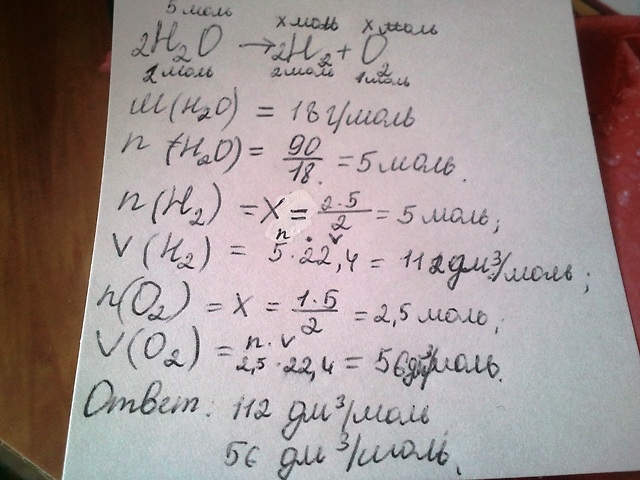 5 моль x моль x моль
2H₂O → 2H₂ + O₂
2 моль 2 моль 1 моль
M(H₂O) = 18 г/моль
n (H₂O) = 90/18 = 5 моль.
n(H₂) = X = 2·5/2 = 5 моль;
n v
V(H₂) = 5·22,4 = 112 дм³/моль;
n(O₂) = X = 1·5/2 = 2,5 моль;
n · v
V(O₂) = 2,5·22,4 = 56 дм³/моль.
Ответ: 112 дм³/моль
56 дм³/моль.